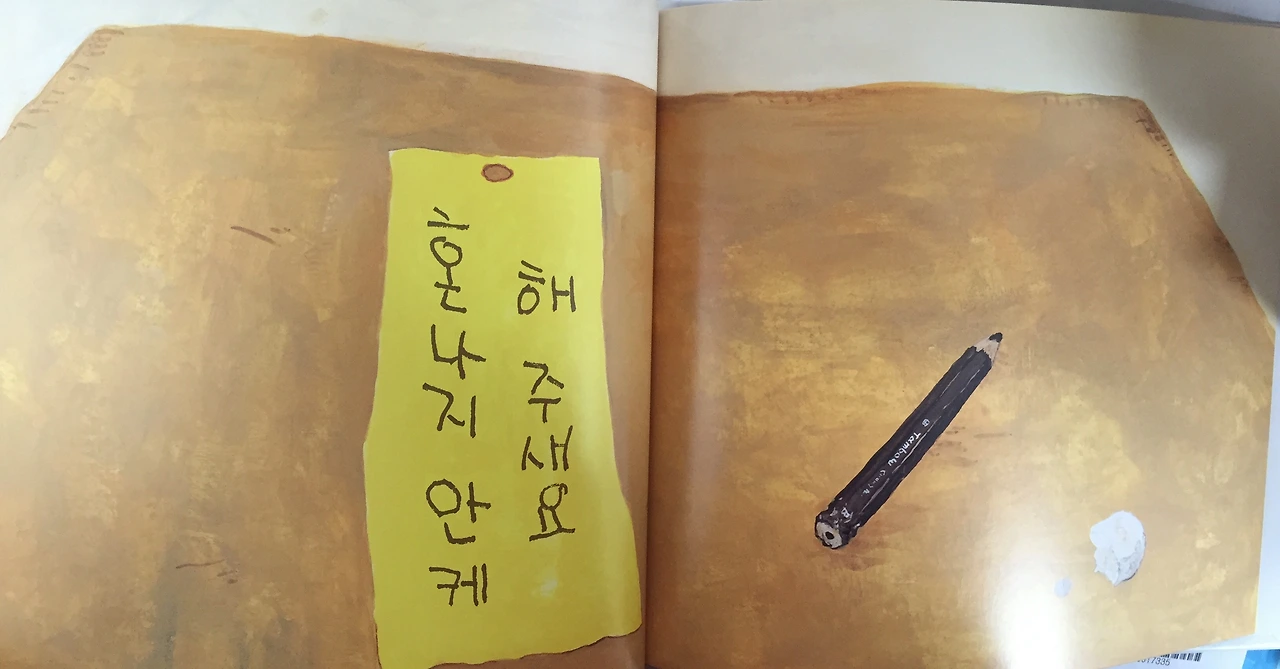 혼나지 안케
해 주새요
Tombow
B
17335